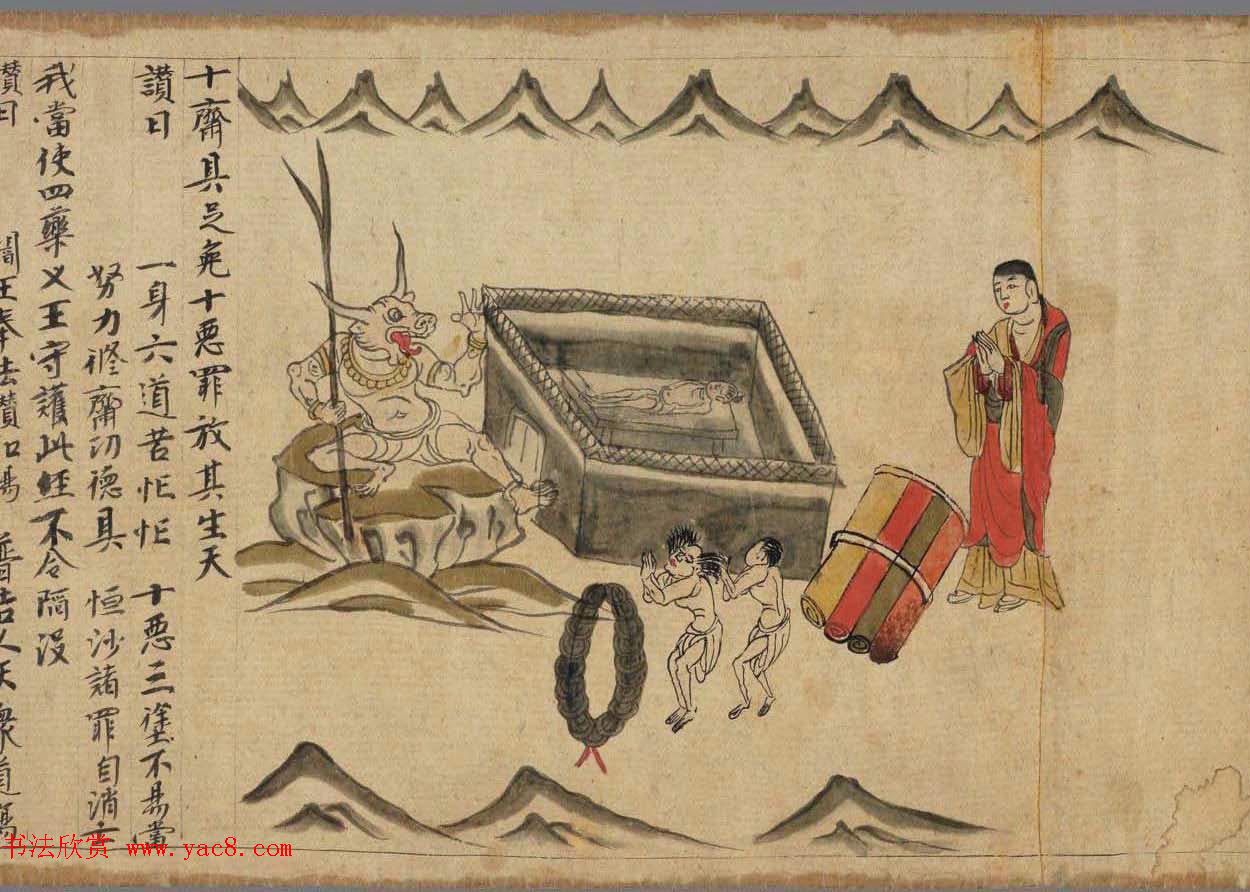 十齋具足免十悪罪放其生天
讃曰 一身六道苦忙忙 十悪三塗不易當
努力修齋功德具 恒沙諸罪自消亡
我當使四藥叉王守護此經不令陷沒
讃曰 閻王奉法讃弘揚 普告人天衆道場
书法欣赏 www.yac8.com